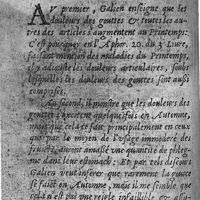 AV premier, Galien enseigne que les
douleurs des gouttes & toutes les au-
tres des articles s'augmentent au Printemps:
C'est pourquoy en l'Aphor. 20. du 3. Liure,
faisant mention des maladies du Printemps,
douleurs articulaires, sous
lesquelles les douleurs des gouttes sont aussi
comprises.
Au second, il monstre que les douleurs des
gouttes s'excitent quelquefois en Autumne,
mais que cela se fait principalement en ceux
qui par le moyen de l'vsage immoderé des
fruicts, auront amassé vne quantité de phleg-
me dans leur estomach; Et par tels discours
Galien veut inferer que rarement la goutte
se fait en Autumne, mais il me semble, que
cela n'est pas vne reigle infaillible &